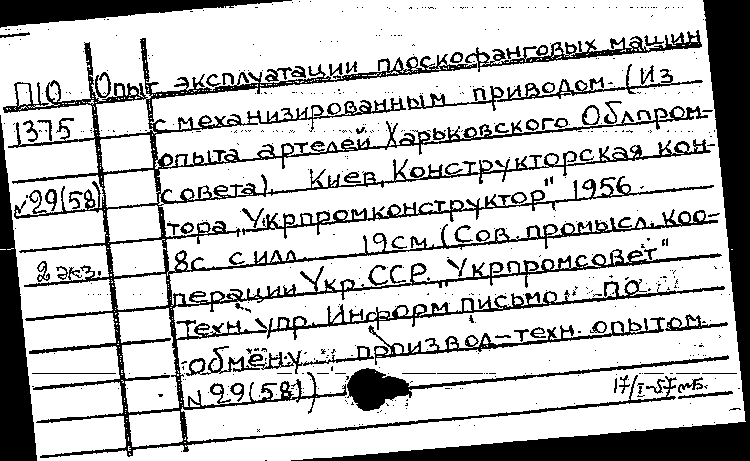 П10 Опыт эксплуатации плоскофанговых машин
1375 с механизированным приводом. (Из
опыта артелей Харьковского Облпром-
№29(58) совета). Киев, Конструкторская кон-
тора "Укрпромконструктор", 1956.
2 экз. 8с. с илл. 19см. (Сов. промысл. коо-
перации Укр. ССР. "Укрпромсовет"
Техн. упр. Информ. письмо по
обмену производ-техн. опытом
№29(58))
17/I-57